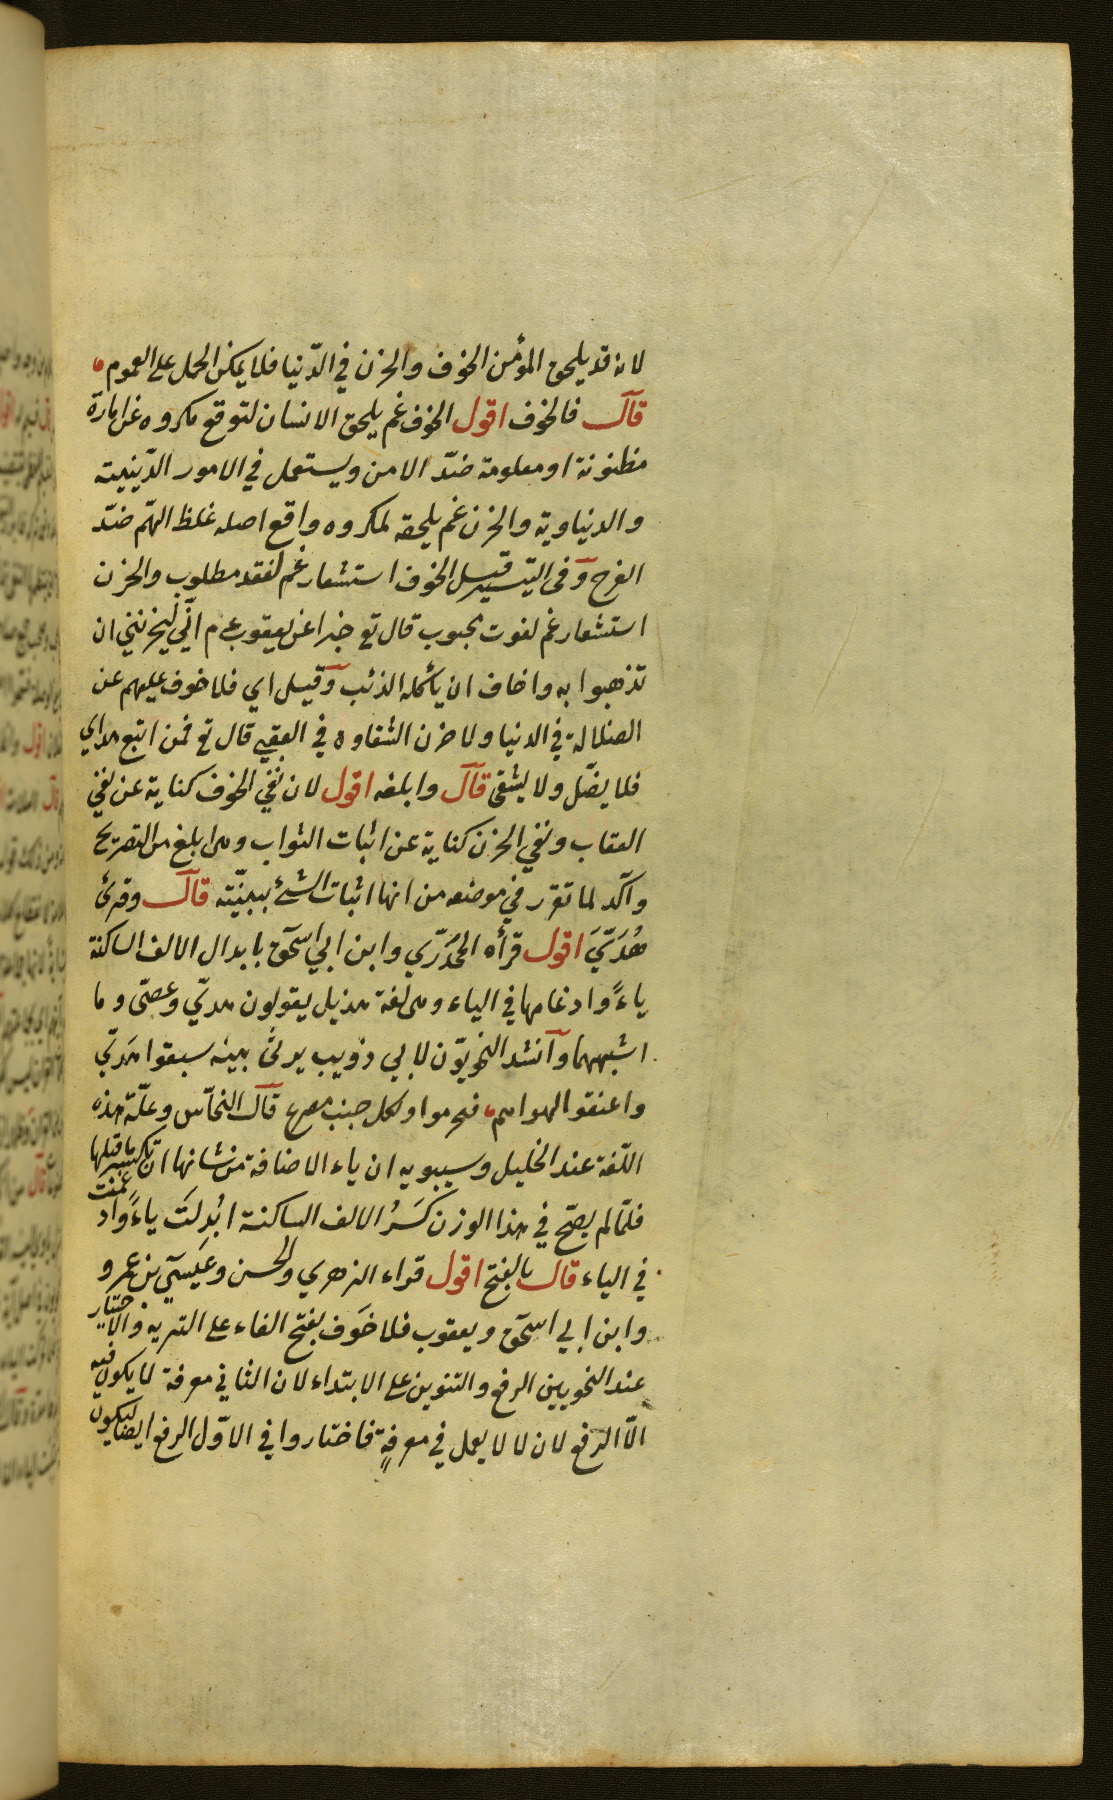 لانه قد يلحق المؤمن الخوف والحزن في الدّنيا فلا يمكن الحمل على العموم
قآل فالخوف اقول الخوف غم يلحق الانسان لتوقع مكروه عن امارة
مظنونة او معلومة ضدّ الامن ويستعمل في الامور الدّينية
والدنياوية والحزن غم يلحقه لمكروه واقع اصله غلظ الهمّ ضدّ
الفرح وفى التيسير قيل الخوف استشعار غم لفقد مطلوب والحزن
استشعار غم لفوت محبوب قال تع خبرا عن يعقوب ع م انّي ليحزنني ان
تذهبوا به واخاف ان يأكله الذئب وقيل اي فلا خوف عليهم عن
الضلالة في الدنيا ولا حزن الشقاوة في العقبى قال تع فمن اتبع هداي
فلا يضلّ ولا يشقى قآل وابلغه اقول لان نفي الخوف كناية عن نفي
العقاب ونفي الحزن كناية عن اثبات الثواب وهى ابلغ من التصريح
وآكد لما تقرر في موضعه من انها اثبات الشئ ببيّنته قآل وقرئ
هُدَيَّ اقول قرأه الجحْدَرّي وابن ابي اسحٓق بابدال الالف الساكنة
ياءً وادغامها في الياء وهى لغة هذيل يقولون هديّ وعصيّ وما
اشبههما وآنشد النحويّون لابي ذؤيب يرثى بنيه سبقوا هَويّ
واعنقوا لهواهم فتخرموا ولكل جنب مصرع قآل النحّاس وعلّة هذه
اللّغة عند الخليل وسيبويه ان ياء الاضافة من شانها ان تكسر ما قبلها
فلمّا لم يصحّ في هذا الوزن كَسْرُ الالف الساكنة ابْدِلَتْ ياءً وادغمت
في الياء قال بالفتح اقول قراء الزهري والحسن وعيسَى بن عمرو
وابن ابي اسحٓق ويعقوب فلا خوَفَ بفتح الفاء على التبرية والاختيار
عند النحويين الرفع والتنوين على الابتداء لان الثاني معرفة لا يكون فيه
الّا الرفع لان لا لا يعمل في معرفةٍ فاختاروا في الاوّل الرفع ايضا ليكون